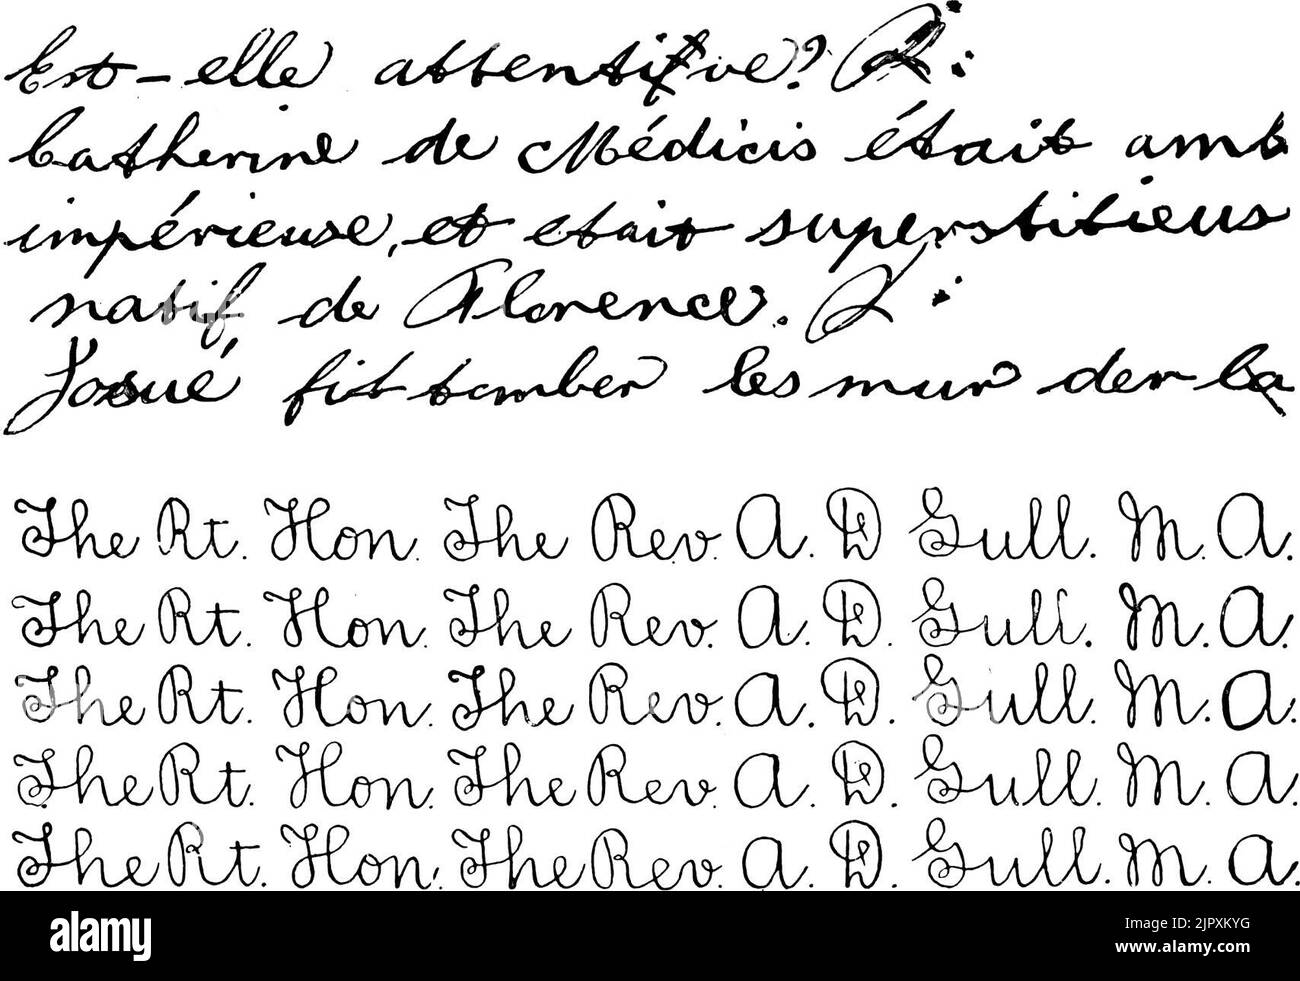 Est-elle attentive?
Catherine de Médicis était amb
impérieuse, et etait superstitieus
natif de Florence.
Josué fit tomber les mur der la
The Rt. Hon. The Rev. A. D Gull. M. A.
The Rt. Hon. The Rev. A. D. Gull. M. A.
The Rt. Hon. The Rev. A. D. Gull. M. A.
The Rt. Hon. The Rev. A. D. Gull. M. A.
The Rt. Hon. The Rev. A. D. Gull. M. A.
alamy
Image ID: 2JPXKYG
www.alamy.com